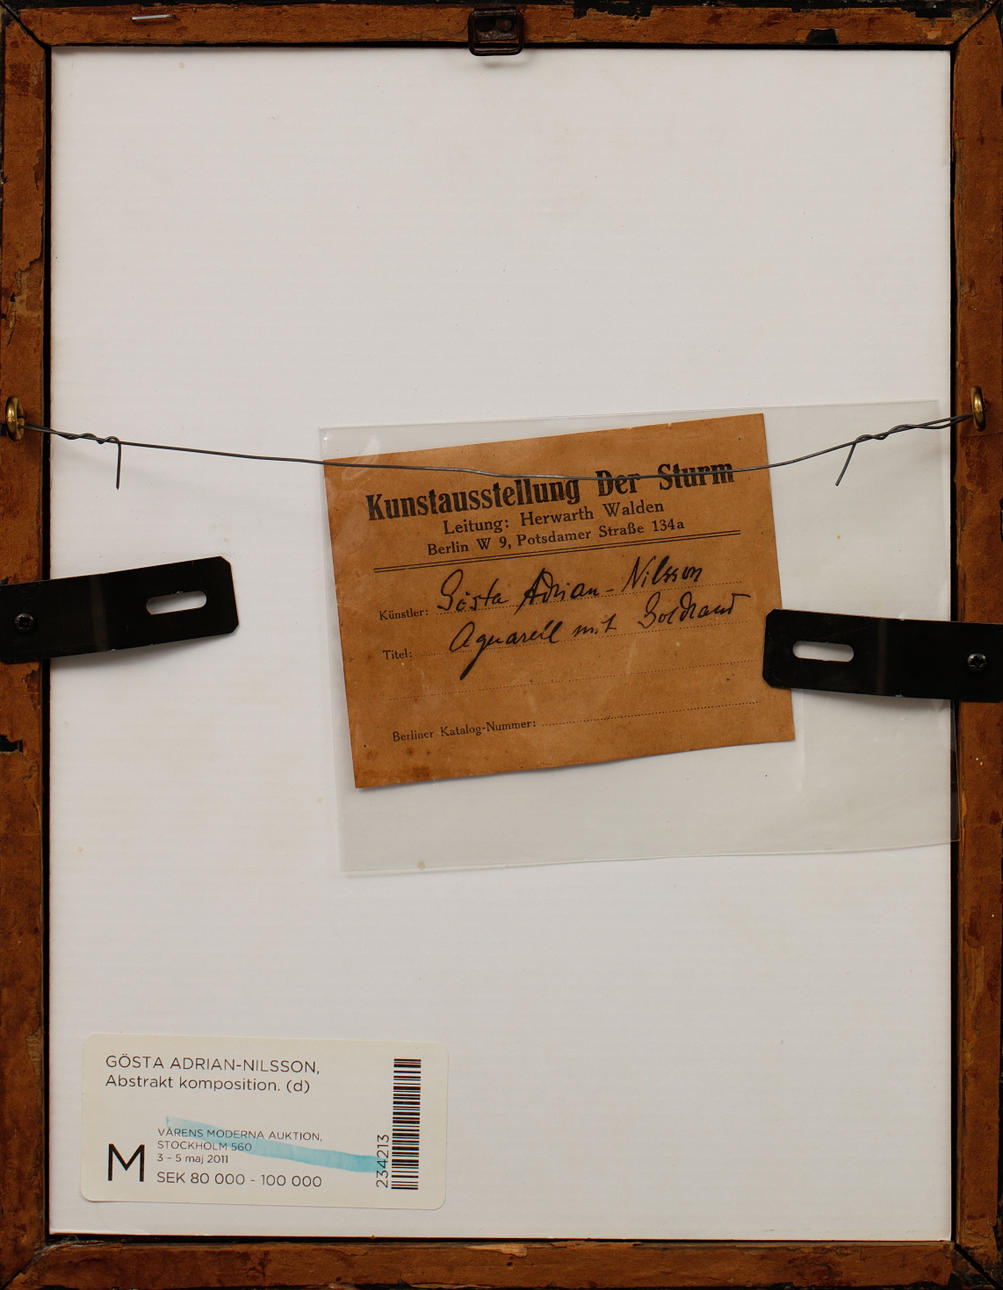 Kunstausstellung Der Sturm
Leitung: Herwarth Walden
Berlin W 9, Potsdamer Straße 134a
Künstler: Gösta Adrian-Nilsson
Titel: Aquarell mit Goldrand
Berliner Katalog-Nummer:
GÖSTA ADRIAN-NILSSON,
Abstrakt komposition. (d)
VÅRENS MODERNA AUKTION,
STOCKHOLM 560
3 – 5 maj 2011
M SEK 80 000 - 100 000
234213